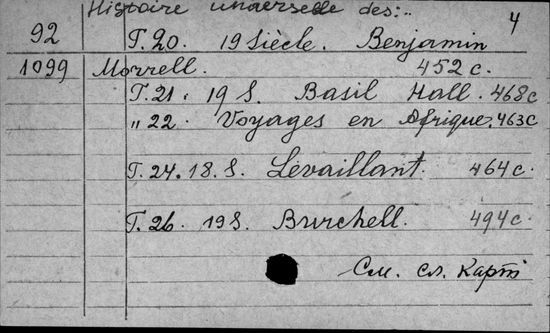 Histoire universelle des:..
4
92 T.20. 19 Siècle. Benjamin
1099 Morrell. 452 c.
T.21. 19 S. Basil Hall. 468c
„ 22. Voyages en Afrique. 463c
T.24. 18. S. Levaillant. 464c.
T.26. 19 S. Burchell. 494c.
См. сл. карт